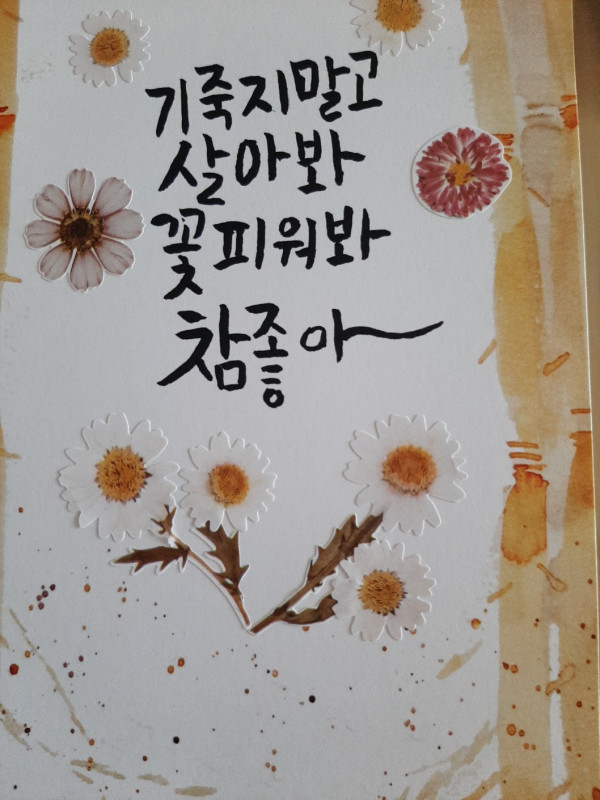 기죽지말고
살아봐
꽃피워봐
참좋아